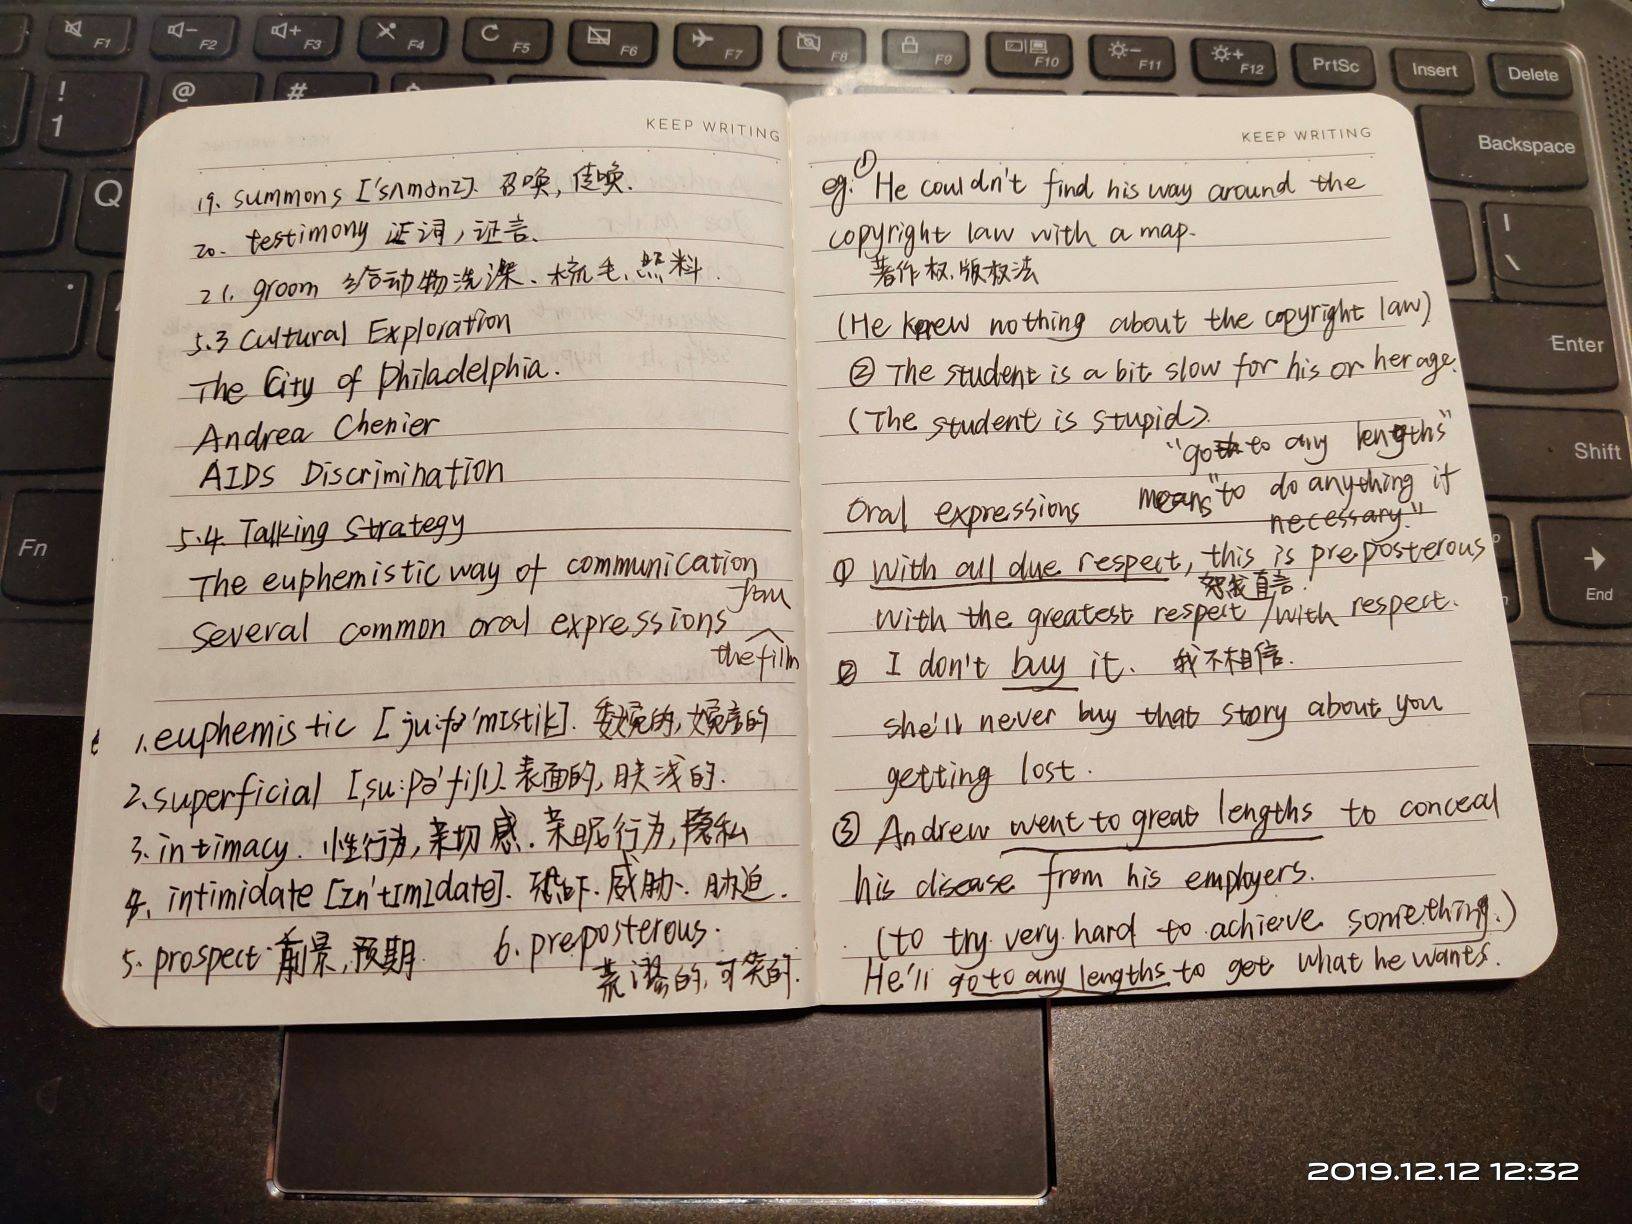 KEEP WRITING
19. summons ['sʌmənz]. 召唤, 传唤.
20. testimony 证词, 证言.
21. groom 给动物洗澡、梳毛、照料.
5.3 Cultural Exploration
The City of Philadelphia.
Andrea Chenier
AIDS Discrimination
5.4. Talking Strategy
The euphemistic way of communication
Several common oral expressions from
the film
1. euphemistic [ju:fə'mɪstik]. 委婉的, 婉言的
2. superficial [,su:pə'fiʃl]. 表面的, 肤浅的.
3. intimacy. 性行为, 亲切感. 亲昵行为, 隐私
4. intimidate [ɪn'tɪmɪdate]. 恐吓. 威胁、胁迫.
5. prospect. 前景, 预期 6. preposterous.
荒谬的, 可笑的.
KEEP WRITING
eg. ① He couldn't find his way around the
copyright law with a map.
著作权. 版权法
(He knew nothing about the copyright law)
② The student is a bit slow for his or her age.
(The student is stupid).
"go to any lengths"
Oral expressions means "to do anything if
necessary."
① With all due respect, this is preposterous
恕我直言.
with the greatest respect / with respect.
② I don't buy it. 我不相信.
she'll never buy that story about you
getting lost.
③ Andrew went to great lengths to conceal
his disease from his employers.
(to try very hard to achieve something.)
He'll go to any lengths to get what he wants.
F1 F2 F3 F4 F5 F6 F7 F8 F9 F10 F11 F12 PrtSc Insert Delete
! 1 @ #
Q
Backspace
Enter
Shift
Fn
End
2019.12.12 12:32